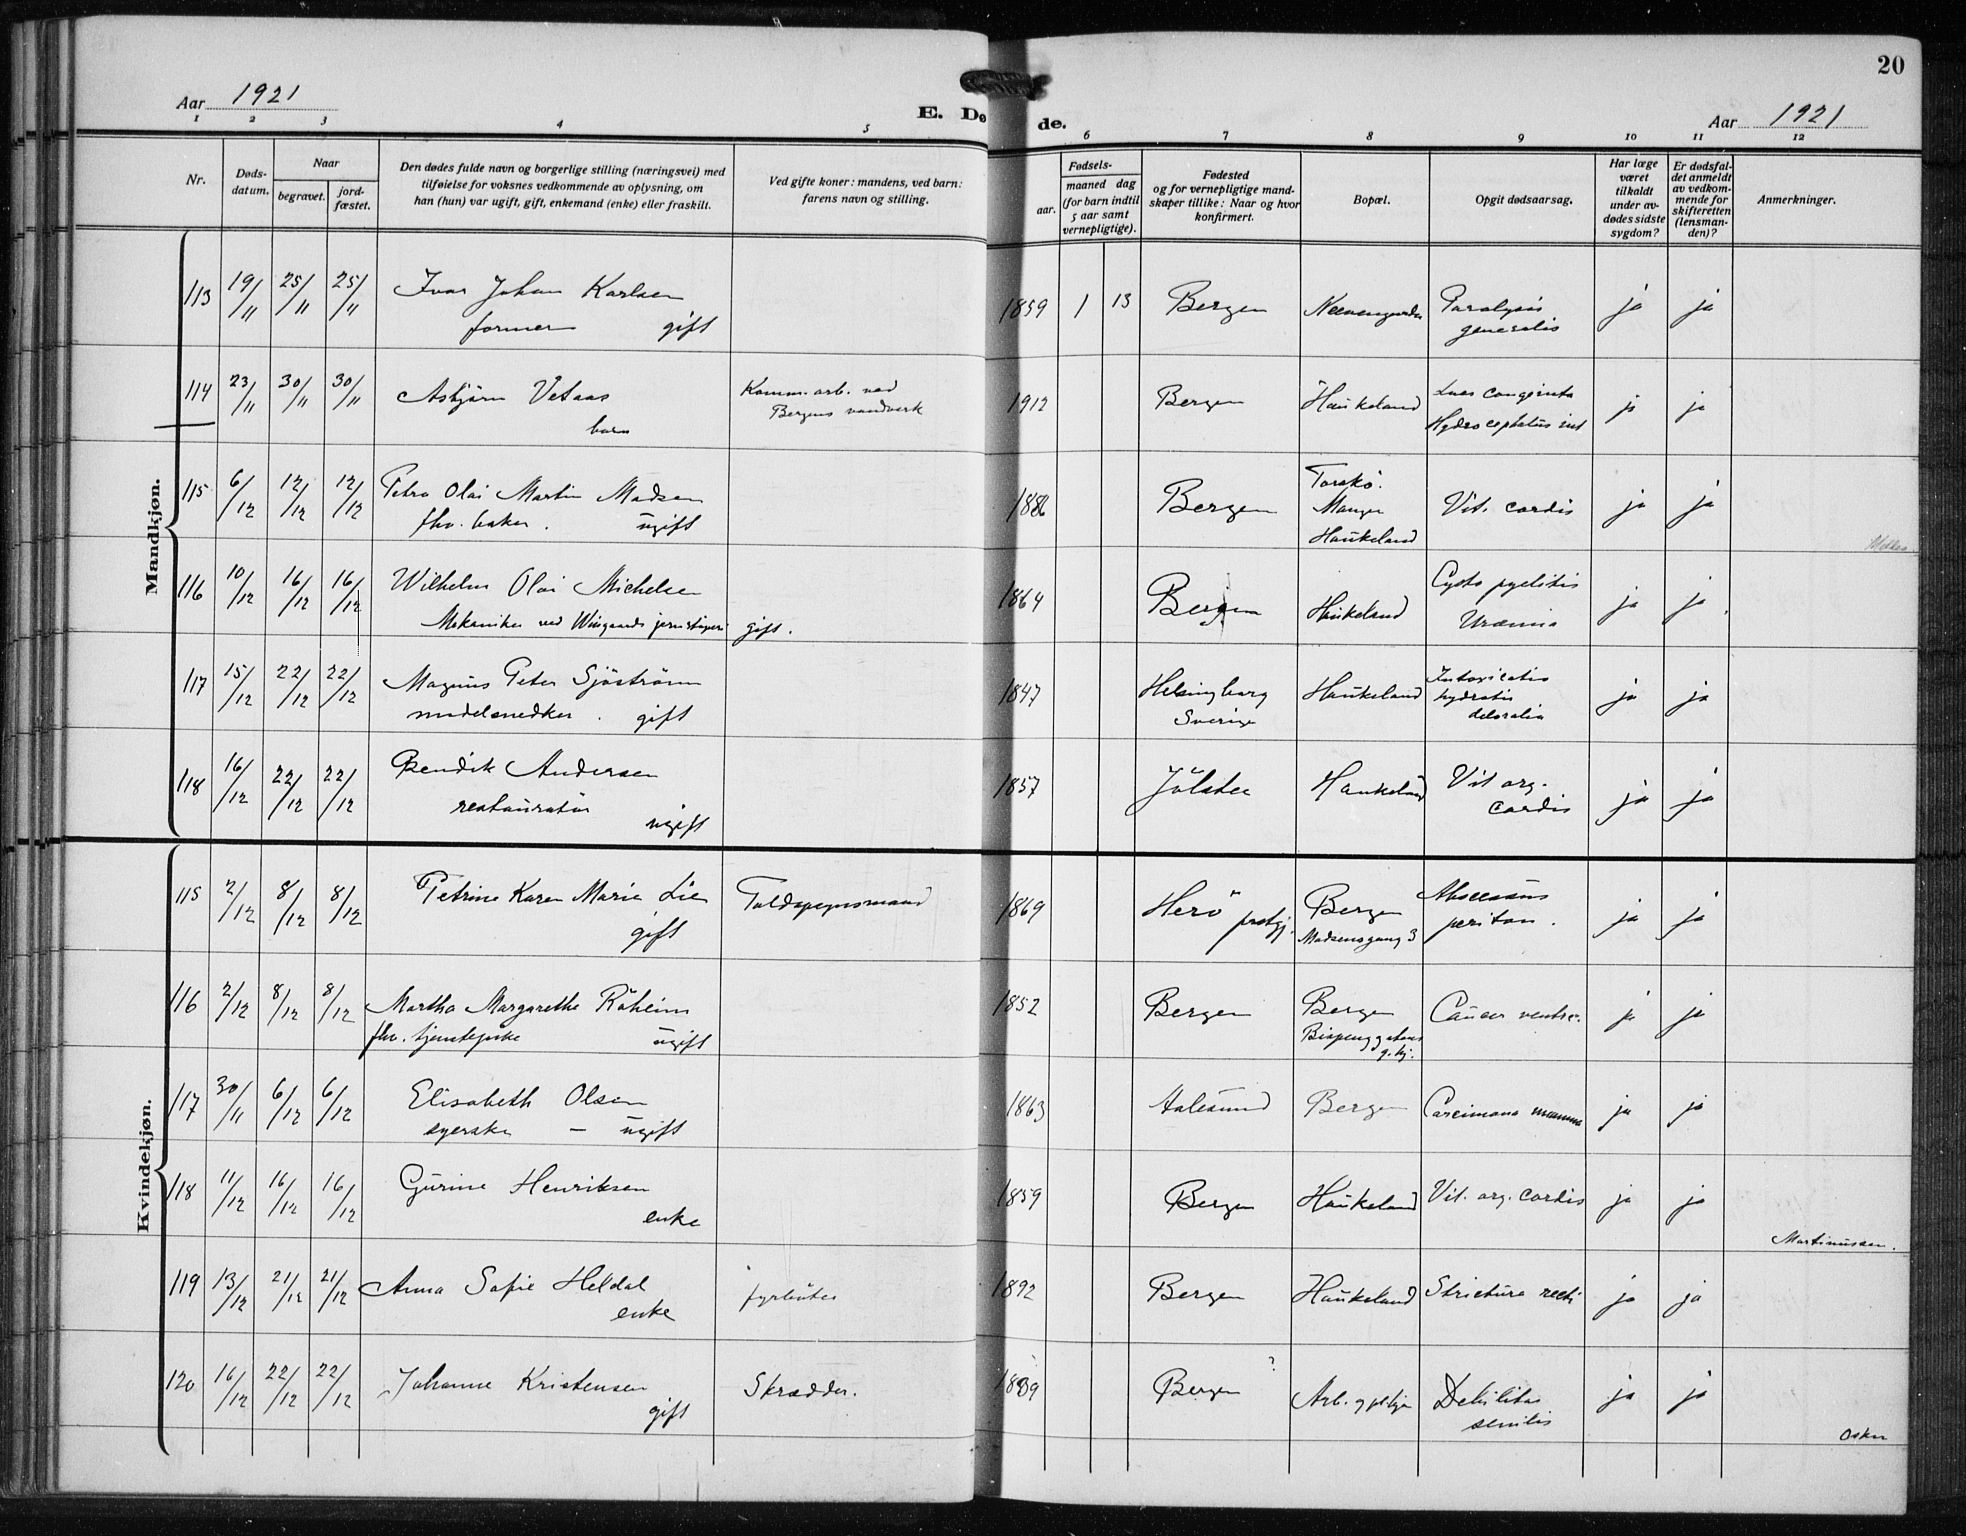 20
Aar 1921
E. Dø de.
Aar 1921
1 2 3 4 5 6 7 8 9 10 11 12
Nr.
Døds-
datum.
Naar
begravet.
jord-
fæstet.
Den dødes fulde navn og borgerlige stilling (næringsvei) med
tilføielse for voksnes vedkommende av oplysning, om
han (hun) var ugift, gift, enkemand (enke) eller fraskilt.
Ved gifte koner: mandens, ved barn:
farens navn og stilling.
Fødsels-
aar.
maaned dag
(for barn indtil
5 aar samt
vernepligtige).
Fødested
og for vernepligtige mand-
skaper tillike: Naar og hvor
konfirmert.
Bopæl.
Opgit dødsaarsag.
Har læge
været
tilkaldt
under av-
dødes sidste
sygdom?
Er dødsfal-
det anmeldt
av vedkom-
mende for
skifteretten
(lensman-
den)?
Anmerkninger.
Mandkjøn.
113 19/11 25/11 25/11 Ivar Johan Karlsen 1859 1 13 Bergen Neevengaarden Paralysis ja ja
former gift generalis
114 23/11 30/11 30/11 Asbjørn Vetaas Komm. arb. ved 1912 Bergen Haukeland Lues congenita ja ja
barn Bergens vandverk Hydrocephalus int
115 6/12 12/12 12/12 Petro Olai Martin Madsen 1886 Bergen Torskø. Vit. cordis ja ja
fhv. baker. ugift Manger
Haukeland
116 10/12 16/12 16/12 Wilhelm Olai Michelsen 1864 Bergen Haukeland Cysto pyelitis ja ja
Mekaniker ved Wingaards jernstøperi gift. Uræmia
117 15/12 22/12 22/12 Magnus Peter Sjöström 1847 Helsingborg Haukeland Intoxicatio ja ja
modelsnedker. gift Sverige hydratis
118 16/12 22/12 22/12 Bendik Andersen 1857 Jölster Haukeland Vit org. ja ja
restauratør ugift cordis
Kvindekjøn.
115 2/12 8/12 8/12 Petrine Karen Marie Lie Toldopsynsmand 1869 Herö Bergen Abscessus ja ja
gift prestgj. Madsensgang 3 periton.
116 2/12 8/12 8/12 Martha Margarethe Röheim 1852 Bergen Bergen Cancer ventr. ja ja
fhv. tjenestepike ugift
117 30/11 6/12 6/12 Elisabeth Olsen 1863 Aalesund Bergen Carcinoma mamma ja ja
syerske – ugift
118 11/12 16/12 16/12 Gurine Henriksen 1859 Bergen Haukeland Vit. org. cordis ja ja
enke Martinussen.
119 13/12 21/12 21/12 Anna Sofie Heldal fyrbøter 1892 Bergen Haukeland Strictura recti ja ja
enke
120 16/12 22/12 22/12 Johanne Kristensen Skrædder. 1839 Bergen ? Arb. Debilitas ja ja
gift senilis